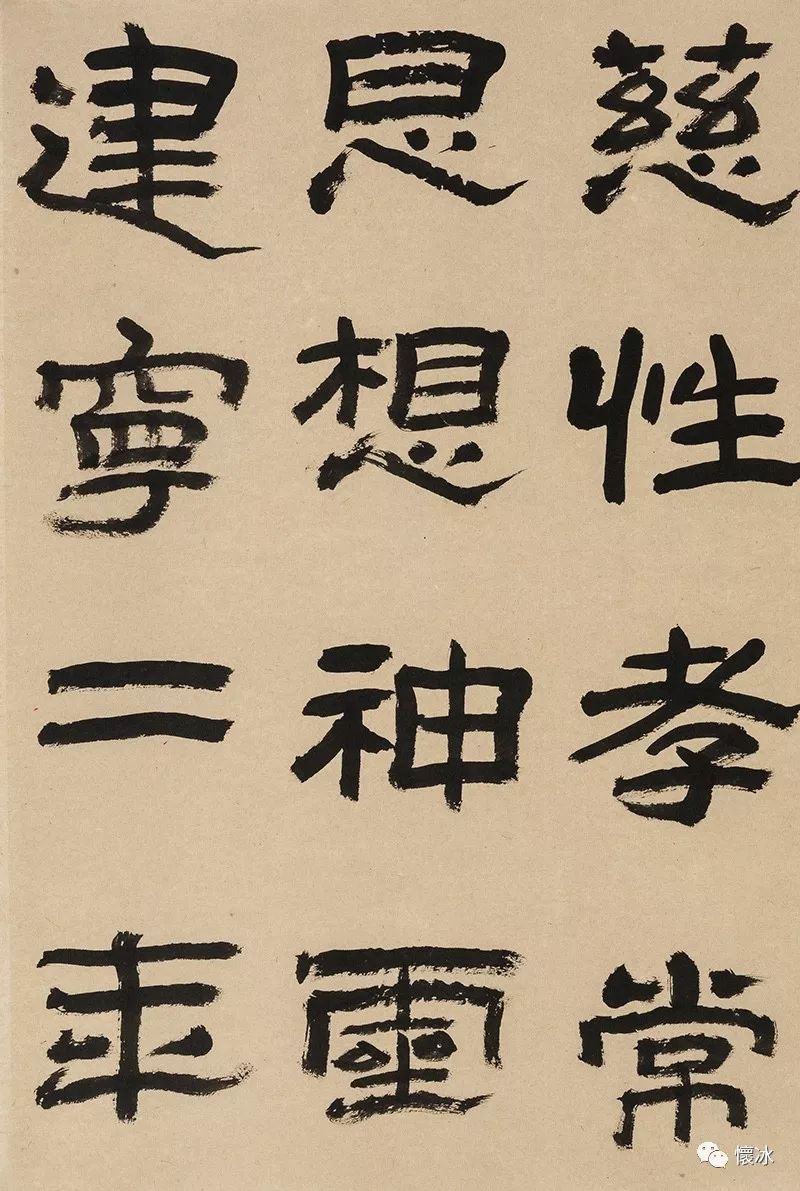 慈性孝常
思想神靈
建寧二年
懷冰